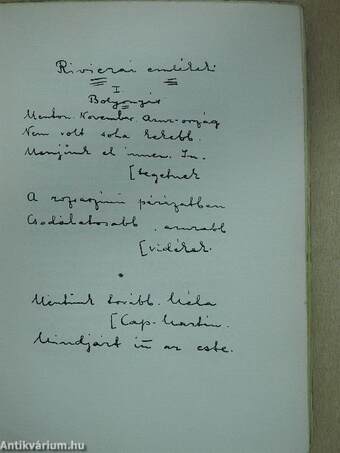 Rivierai emlékek
I
Bolyongás
Menton. November. Azur-ország
Nem volt soha kékebb.
Menjünk el innen. Im.
[tegetnek
A rózsaszínü párázatban
Csodálatosabb, azurabb
[vidékek.
*
Mentünk tovább. Néla
[Cap-Martin.
Mindjárt itt az este.
Antikvárium.hu